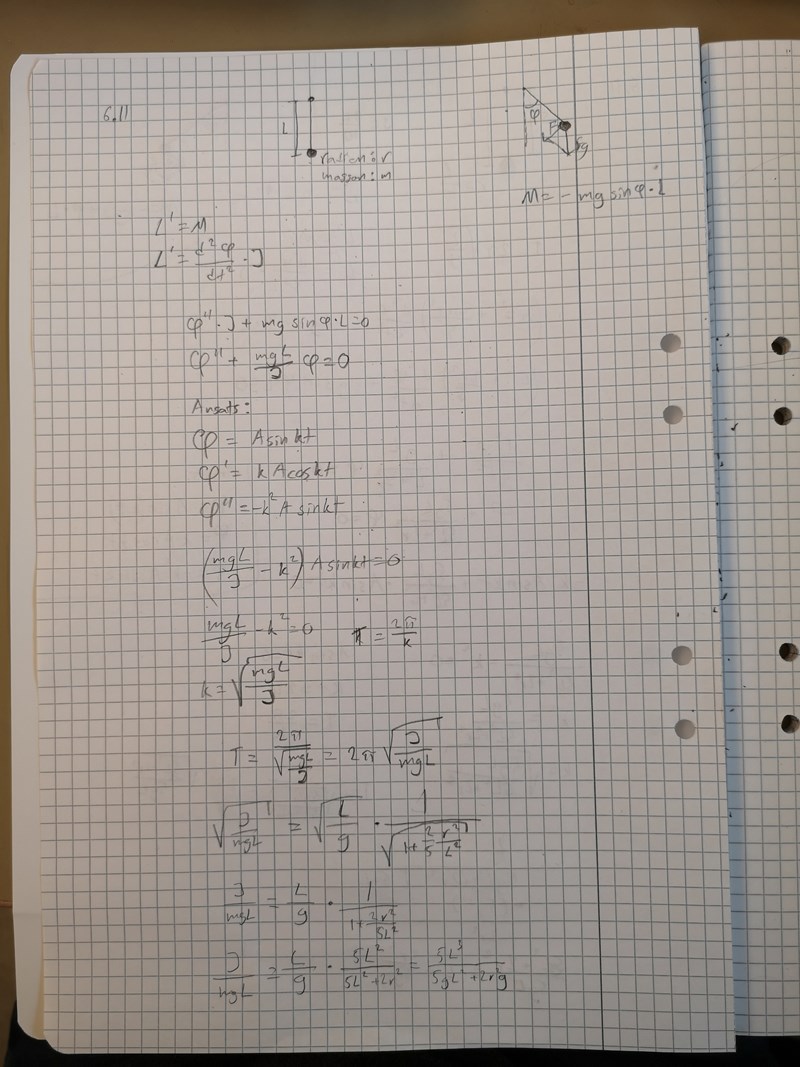 6.11
L
radien: r
massan: m
φ
F
M = - mg sin φ · L
L' = M
L' = d²φ/dt² · J
φ'' · J + mg sin φ · L = 0
φ'' + mgL/J φ = 0
Ansats:
φ = A sin kt
φ' = k A cos kt
φ'' = -k² A sin kt
(mgL/J - k²) A sin kt = 0
mgL/J - k² = 0 T = 2π/k
k = √(mgL/J)
T = 2π/√(mgL/J) = 2π √(J/mgL)
√(J/mgL) = √(L/g) · 1/√(1 + 2/5 r²/L²)
J/mgL = L/g · 1/(1 + 2r²/5L²)
J/mgL = L/g · 5L²/(5L² + 2r²) = 5L³/(5gL² + 2r²g)